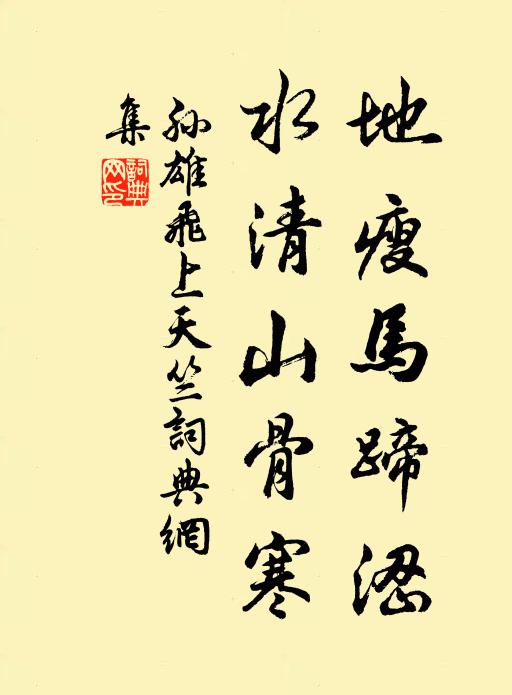 地瘦馬蹄澀
水清山骨寒
孫雄飛上天竺詞典網
集
詞典
网印